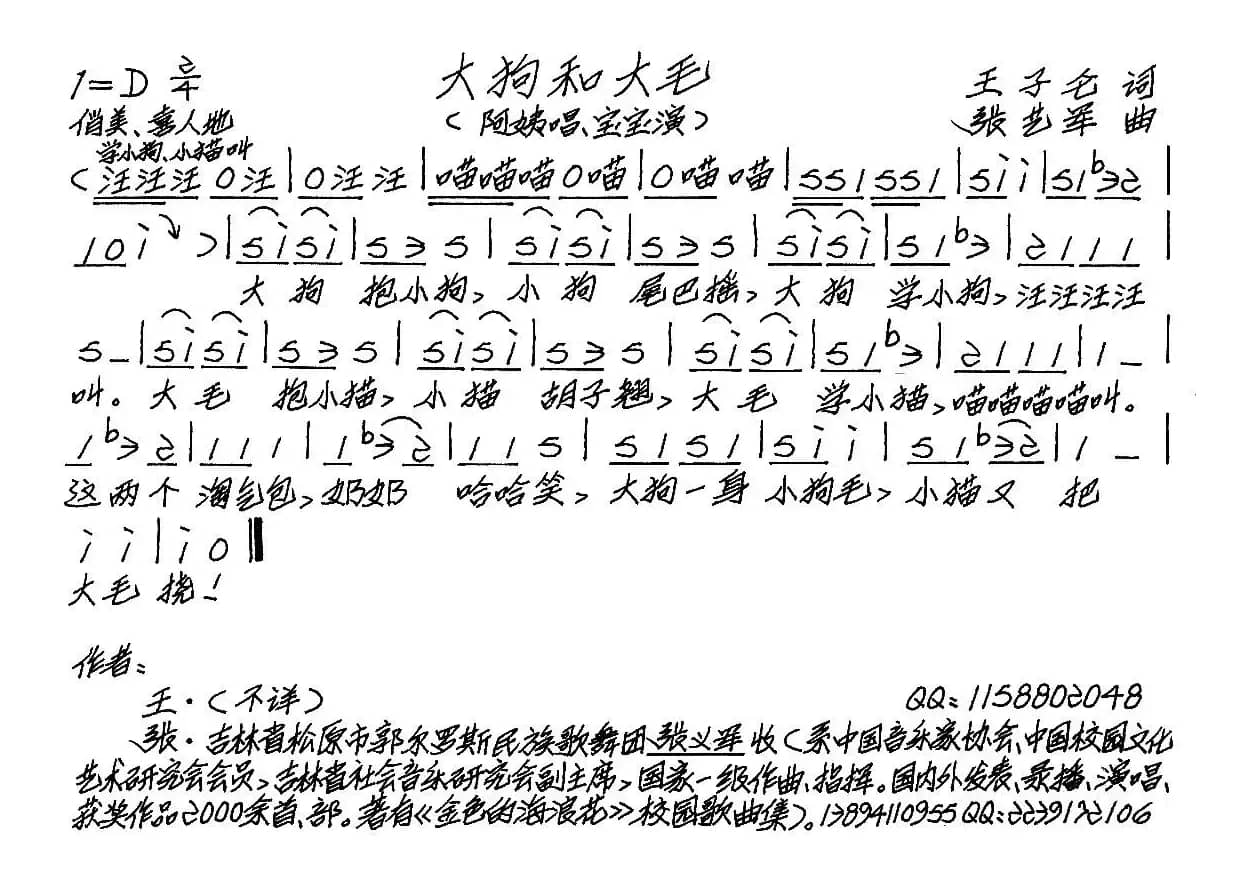 1=D 2/4 大狗和大毛 王子仑 词
俏美、喜人地 （阿姨唱、宝宝演） 张艺军 曲
学小狗、小猫叫
（汪汪汪 0汪|0汪 汪|喵喵喵0喵|0喵 喵|551551|5i i|51b32|
10i ）|5i5i|53 5|5i5i|53 5|5i5i|51b3|2111|
大 狗 抱小狗，小 狗 尾巴摇，大 狗 学小狗，汪汪汪汪
5－|5i5i|53 5|5i5i|53 5|5i5i|51b3|2111|1－|
叫。大 毛 抱小猫，小 猫 胡子翘，大 毛 学小猫，喵喵喵喵叫。
1b32|11 1|1b32|11 5|5151|5i i|51b32|1－|
这两个 淘气包，奶奶 哈哈笑，大狗一身 小狗毛，小猫又 把
i i|i 0‖
大毛 挠！
作者：
王·（不详） QQ：1158802048
张·吉林省松原市郭尔罗斯民族歌舞团张义军收（系中国音乐家协会、中国校园文化
艺术研究会会员，吉林省社会音乐研究会副主席，国家一级作曲、指挥。国内外发表、录播、演唱、
获奖作品2000余首、部。著有《金色的海浪花》校园歌曲集）。13894110955QQ：2239172106